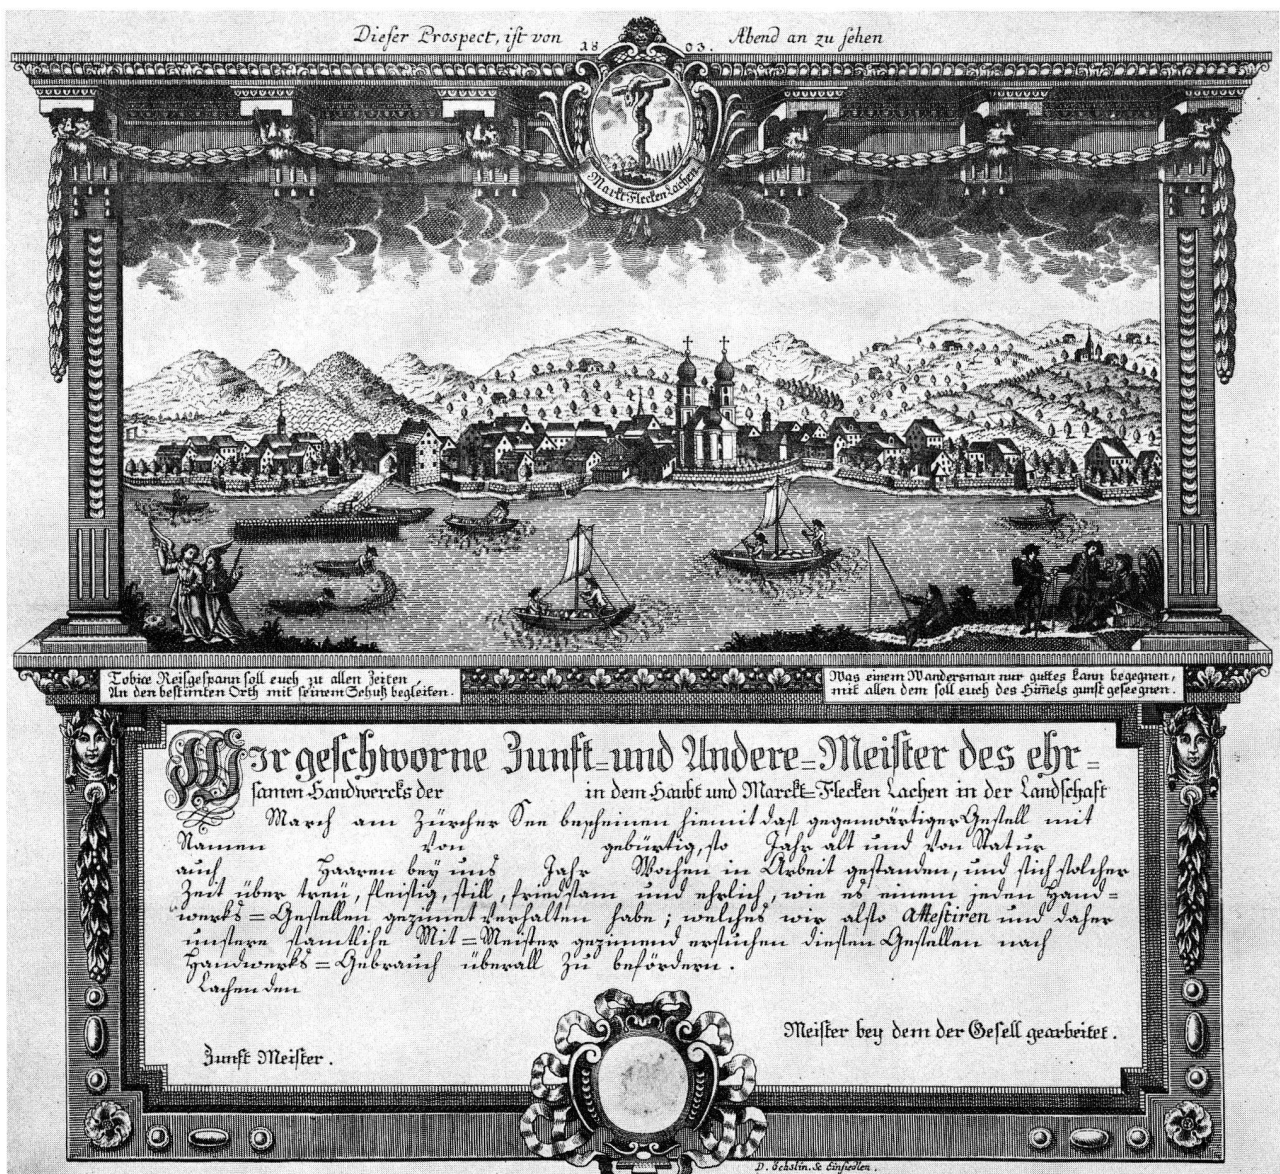 Dieser Prospect, ist von 1803. Abend an zu sehen
Markt-Flecken Lachen
Tobiæ Reisgespann soll euch zu allen Zeiten,
An den bestimten Orth mit seinem Schutz begleiten.
Was einem Wandersman nur guttes kann begegnen,
mit allen dem soll euch des Him̄els gunst geseegnen.
Wir geschworne Zunft=und Andere=Meister des ehr=
samen Handwercks der in dem Haubt und Marckt=Flecken Lachen in der Landschaft
March am Zürcher See bescheinen hiemit dass gegenwärtiger Gesell mit
Namen von gebürtig, so Jahr alt und von Statur
auch Haaren bey uns Jahr Wochen in Arbeit gestanden, und sich solcher
Zeit über treü, fleissig, still, friedsam und ehrlich, wie es einem jeden Hand=
werks=Gesellen gezimet verhalten habe; welches wir also Attestiren und daher
unsere samtliche Mit=Meister gezimend ersuchen diesen Gesellen nach
Handwerks=Gebrauch überall zu befördern.
Lachen den
Meister bey dem der Gesell gearbeitet.
Zunft Meister.
D. Öchslin. Sc Einsiedlen.